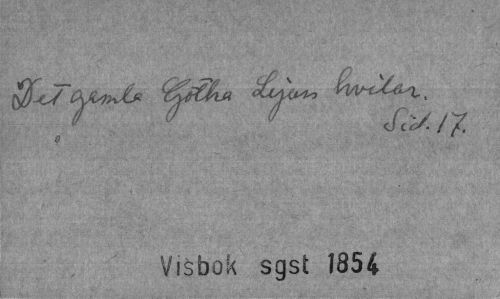 Det gamla Götha Lejon hvilar.
Sid. 17.
Visbok sgst 1854